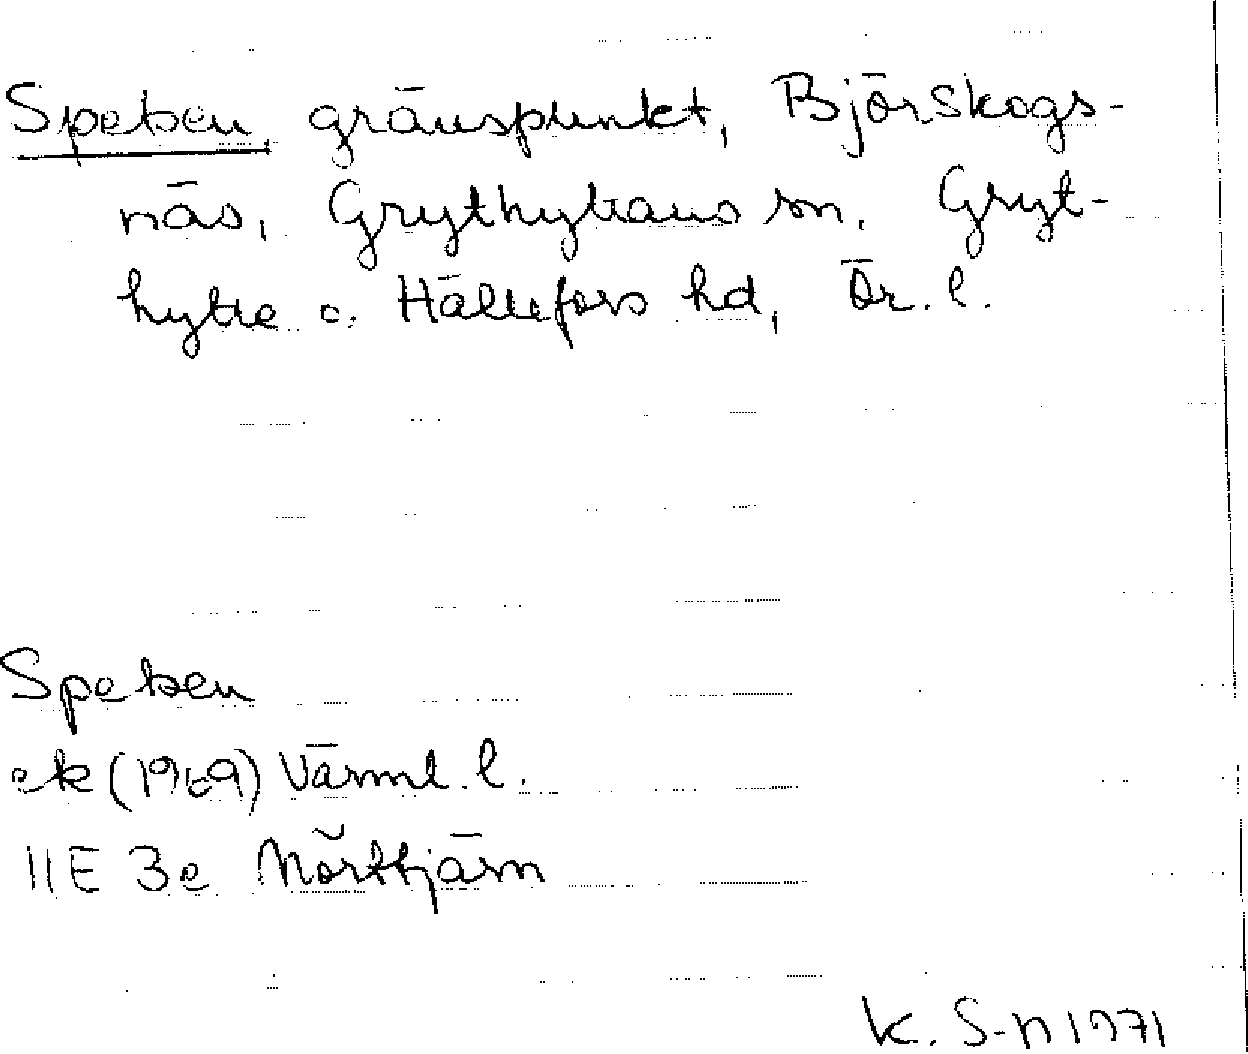 Spetsen, gränspunkt, Björskogs-
näs, Grythyttans sn, Gryt-
hytte o. Hällefors hd, Ör. l.
Spetsen
ek (1969) Värml. l.
11E 3e Mörttjärn
K. S-n 1971